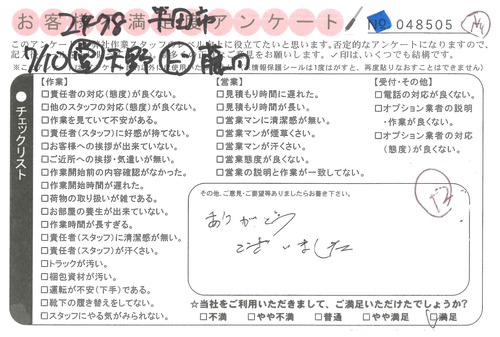 お客様不満足度アンケート
2478 半田市
No 048505
このアンケートは弊社作業スタッフのレベル向上に役立てたいと思います。否定的なアンケートになりますので、
ご意見をお願いします。✓印は、いくつでも結構です。
個人情報保護シールは1度がすと、再度貼りなおすことはできません)
チェックリスト
【作業】
□責任者の対応(態度)が良くない。
□他のスタッフの対応(態度)が良くない。
□作業を見ていて不安がある。
□責任者(スタッフ)に好感が持てない。
□お客様への挨拶が出来ていない。
□ご近所への挨拶・気遣いが無い。
□作業開始前の内容確認がなかった。
□作業開始時間が遅れた。
□荷物の取り扱いが雑である。
□お部屋の養生が出来ていない。
□作業時間が長すぎる。
□責任者(スタッフ)に清潔感が無い。
□責任者(スタッフ)が汗くさい。
□トラックが汚い。
□梱包資材が汚い。
□運転が不安(下手)である。
□靴下の履き替えをしてない。
□スタッフにやる気がみられない。
【営業】
□見積もり時間に遅れた。
□見積もり時間が長い。
□営業マンに清潔感が無い。
□営業マンが煙草くさい。
□営業マンが汗くさい。
□営業態度が良くない。
□営業の説明と作業が一致してない。
【受付・その他】
□電話の対応が良くない。
□オプション業者の説明
・作業が良くない。
□オプション業者の対応
(態度)が良くない。
その他、ご意見・ご要望等ありましたらお書き下さい。
ありがとう
ございました
☆当社をご利用いただきまして、ご満足いただけたでしょうか?
□不満 □やや不満 □普通 □やや満足 ☑満足